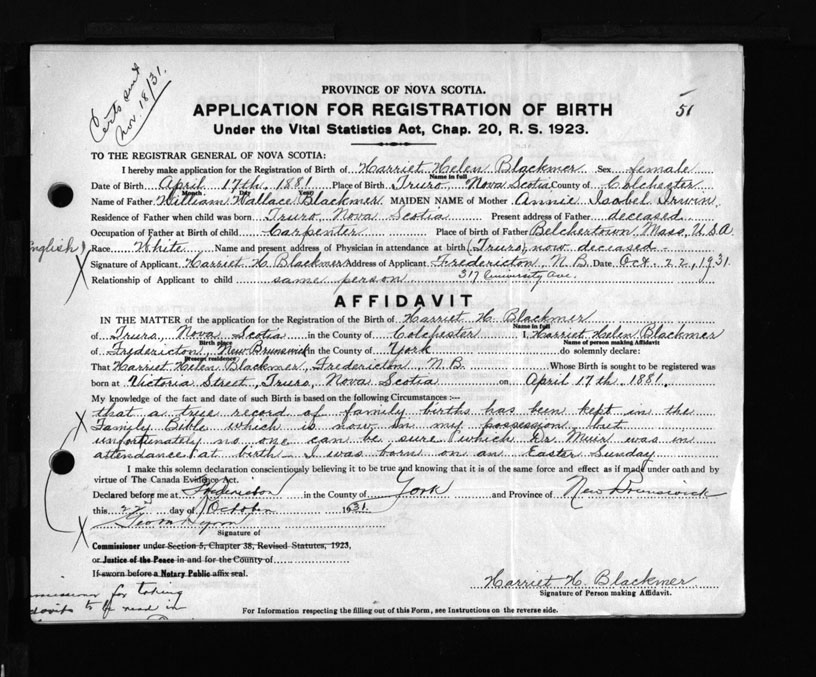 Certs sent
Nov 18/31.
51
PROVINCE OF NOVA SCOTIA.
APPLICATION FOR REGISTRATION OF BIRTH
Under the Vital Statistics Act, Chap. 20, R. S. 1923.
TO THE REGISTRAR GENERAL OF NOVA SCOTIA:
I hereby make application for the Registration of Birth of Harriet Helen Blackmer Sex female
Name in full
Date of Birth April 17th. 1881 Place of Birth Truro Nova Scotia County of Colchester
Month Day Year
Name of Father William Wallace Blackmer MAIDEN NAME of Mother Annie Isabel Irwin
Residence of Father when child was born Truro Nova Scotia Present address of Father deceased
Occupation of Father at Birth of child Carpenter Place of birth of Father Belchertown, Mass, U.S.A.
(English) Race White Name and present address of Physician in attendance at birth (Truro) now deceased
Signature of Applicant Harriet H. Blackmer Address of Applicant Fredericton, N.B. Date Oct. 22, 1931.
Relationship of Applicant to child same person 317 University Ave.
AFFIDAVIT
IN THE MATTER of the application for the Registration of the Birth of Harriet H. Blackmer
Name in full
of Truro, Nova Scotia in the County of Colchester I, Harriet Helen Blackmer
Birth place Name of person making Affidavit
of Fredericton, New Brunswick in the County of York do solemnly declare:
Present residence
That Harriet Helen Blackmer, Fredericton, N.B. Whose Birth is sought to be registered was
born at Victoria Street, Truro, Nova Scotia on April 17th. 1881.
My knowledge of the fact and date of such Birth is based on the following Circumstances :—
that a true record of family births has been kept in the
Family Bible which is now in my possession but
unfortunately no one can be sure which Dr. Muir was in
attendance at birth — I was born on an Easter Sunday
I make this solemn declaration conscientiously believing it to be true and knowing that it is of the same force and effect as if made under oath and by
virtue of The Canada Evidence Act.
Declared before me at Fredericton in the County of York and Province of New Brunswick
this 22 day of October 1931.
Signature of
Commissioner under Section 5, Chapter 38, Revised Statutes, 1923,
or Justice of the Peace in and for the County of
If sworn before a Notary Public affix seal.
Harriet H. Blackmer
Signature of Person making Affidavit.
for taking
to be used in
For Information respecting the filling out of this Form, see Instructions on the reverse side.